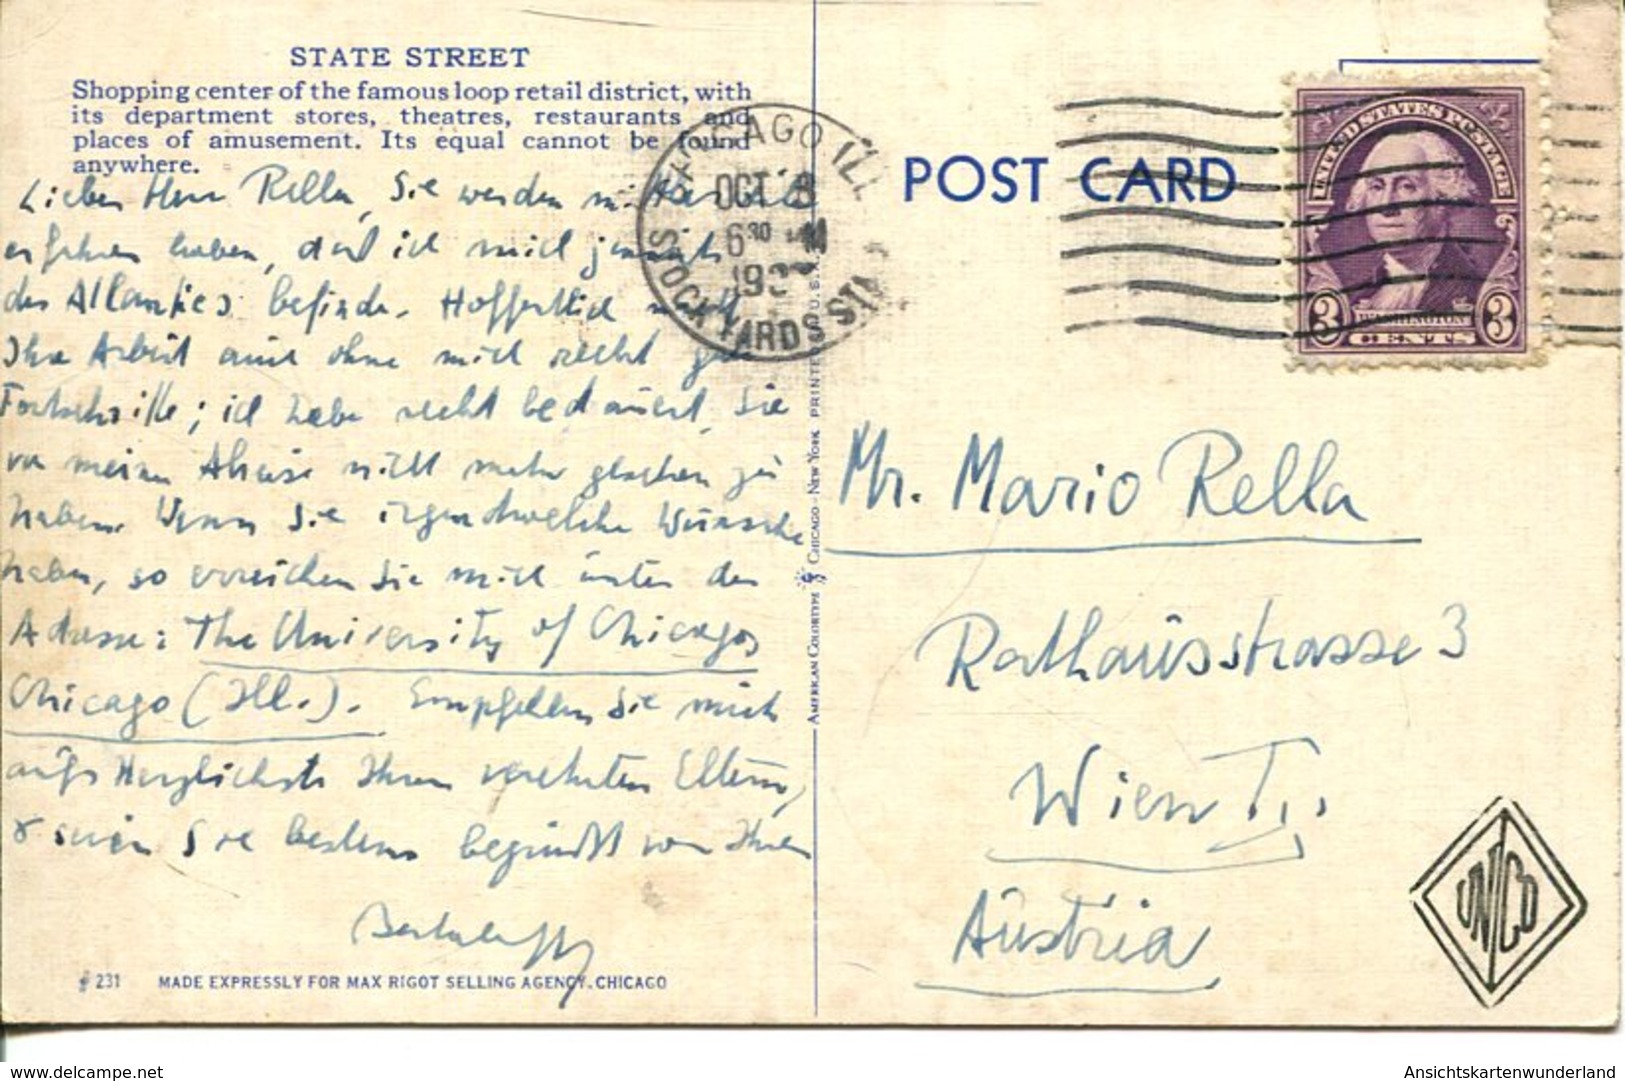 STATE STREET
Shopping center of the famous loop retail district, with
its department stores, theatres, restaurants and
places of amusement. Its equal cannot be found
anywhere.
Lieber Herr Rella, Sie werden mittlerweile
erfahren haben, daß ich mich jenseits
des Atlantics befinde. Hoffentlich macht
Ihre Arbeit auch ohne mich recht gute
Fortschritte; ich habe recht bedauert, Sie
vor meiner Abreise nicht mehr gesehen zu
haben. Wenn Sie irgendwelche Wünsche
haben, so erreichen Sie mich unter der
Adresse: The University of Chicago,
Chicago (Ill.). Empfehlen Sie mich
aufs Herzlichste Ihren verehrten Eltern,
& seien Sie bestens begrüßt von Ihrem
# 231 MADE EXPRESSLY FOR MAX RIGOT SELLING AGENCY, CHICAGO
AMERICAN COLORTYPE CHICAGO - NEW YORK PRINTED U.S.A.
CHICAGO ILL
OCT
6 30 M
STOCK YARDS STA
POST CARD
UNITED STATES POSTAGE
WASHINGTON
3 CENTS 3
Mr. Mario Rella
Rathausstrasse 3
Wien I.,
Austria
UNICO
www.delcampe.net
Ansichtskartenwunderland